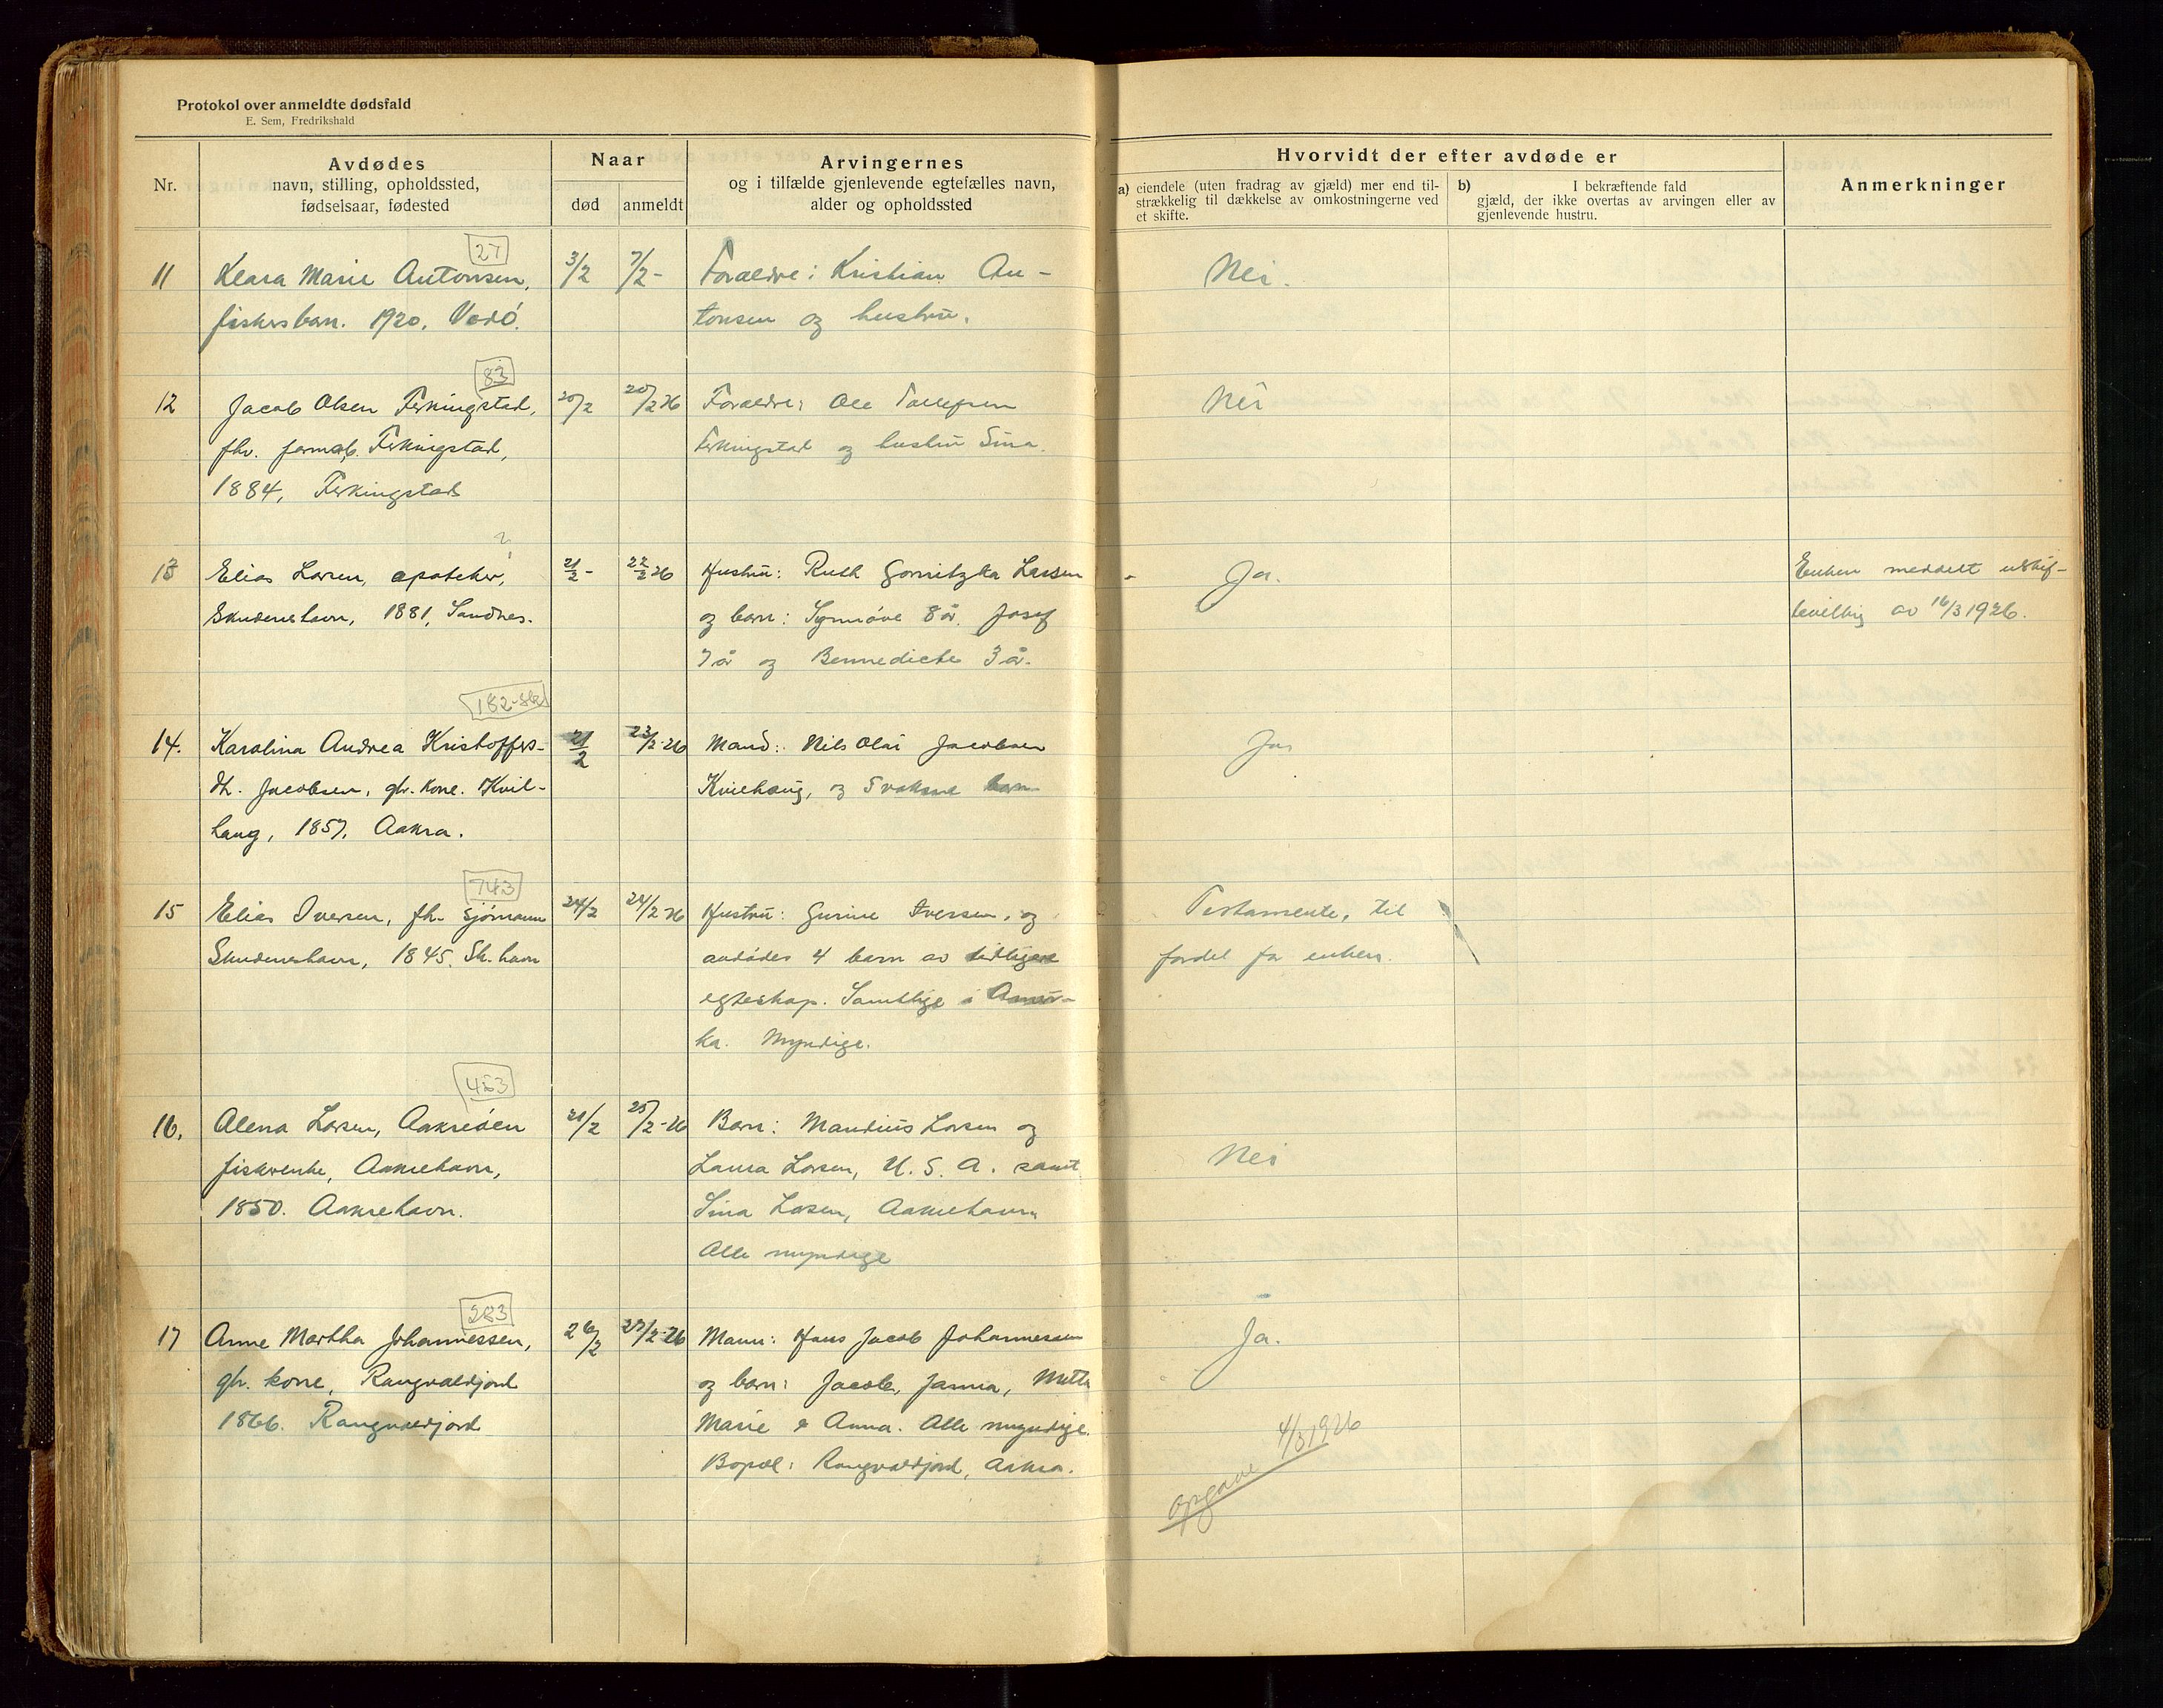 Protokol over anmeldte dødsfald
E. Sem, Fredrikshald
Nr.
Avdødes
navn, stilling, opholdssted,
fødselsaar, fødested
Naar
død
anmeldt
Arvingernes
og i tilfælde gjenlevende egtefælles navn,
alder og opholdssted
Hvorvidt der efter avdøde er
a) eiendele (uten fradrag av gjæld) mer end til-
strækkelig til dækkelse av omkostningerne ved
et skifte.
b) I bekræftende fald
gjæld, der ikke overtas av arvingen eller av
gjenlevende hustru.
Anmerkninger
27
11 Klara Marie Antonsen, 3/2 7/2- Forældre: Kristian An- Nei.
fiskersbarn. 1920. Vedø. tonsen og hustru.
83
12 Jacob Olsen Ferkingstad, 20/2 20/2 26 Forældre: Ole Tollefsen Nei
fhv. Ferkingstad, Ferkingstad og hustru Sina.
1884, Ferkingstad
?
13 Elias Larsen, apoteker, 21/2- 22/2 26 Hustru: Ruth Gornitzka Larsen - Ja. Enken meddelt uskif-
Skudeneshavn, 1881, Sandnes. og barn: Synnøve 8 år. Josef tebevillig av 16/3 1926.
7 år og Bennedicte 3 år.
182-
14. Karolina Andrea Kristoffers- 21/2 23/2-26 Mand: Nils Olai Jacobsen Ja
dtr. Jacobsen, gh. kone. Kvil- Kvilhaug, og 5 voksne barn
haug, 1857. Aakra.
743
15 Elias Iversen, fh. sjømann 24/2 24/2 26 Hustru: Gurine Iversen, og Testamente, til
Skudeneshavn, 1845. Sk.havn avdødes 4 barn av tidligere fordel for enken.
egteskap. Samtlige i Ameri-
ka. Myndige.
453
16. Alena Larsen, Aakreøen 21/2 25/2-26 Barn: Mandius Larsen og Nei
fiskerenke, Aakrehavn, Laura Larsen, U. S. A. samt
1850. Aakrehavn. Sina Larsen, Aakrehavn
Alle myndige
283
17 Anne Martha Johannessen, 26/2 27/2-26 Mann: Hans Jacob Johannessen Ja.
gh. kone, Rangvaldjord og barn: Jacob, Janna, Mette
1866. Rangvaldjord Marie & Anna. Alle myndige.
Bopæl: Rangvaldjord, Aakra.
opgave 4/3 1926